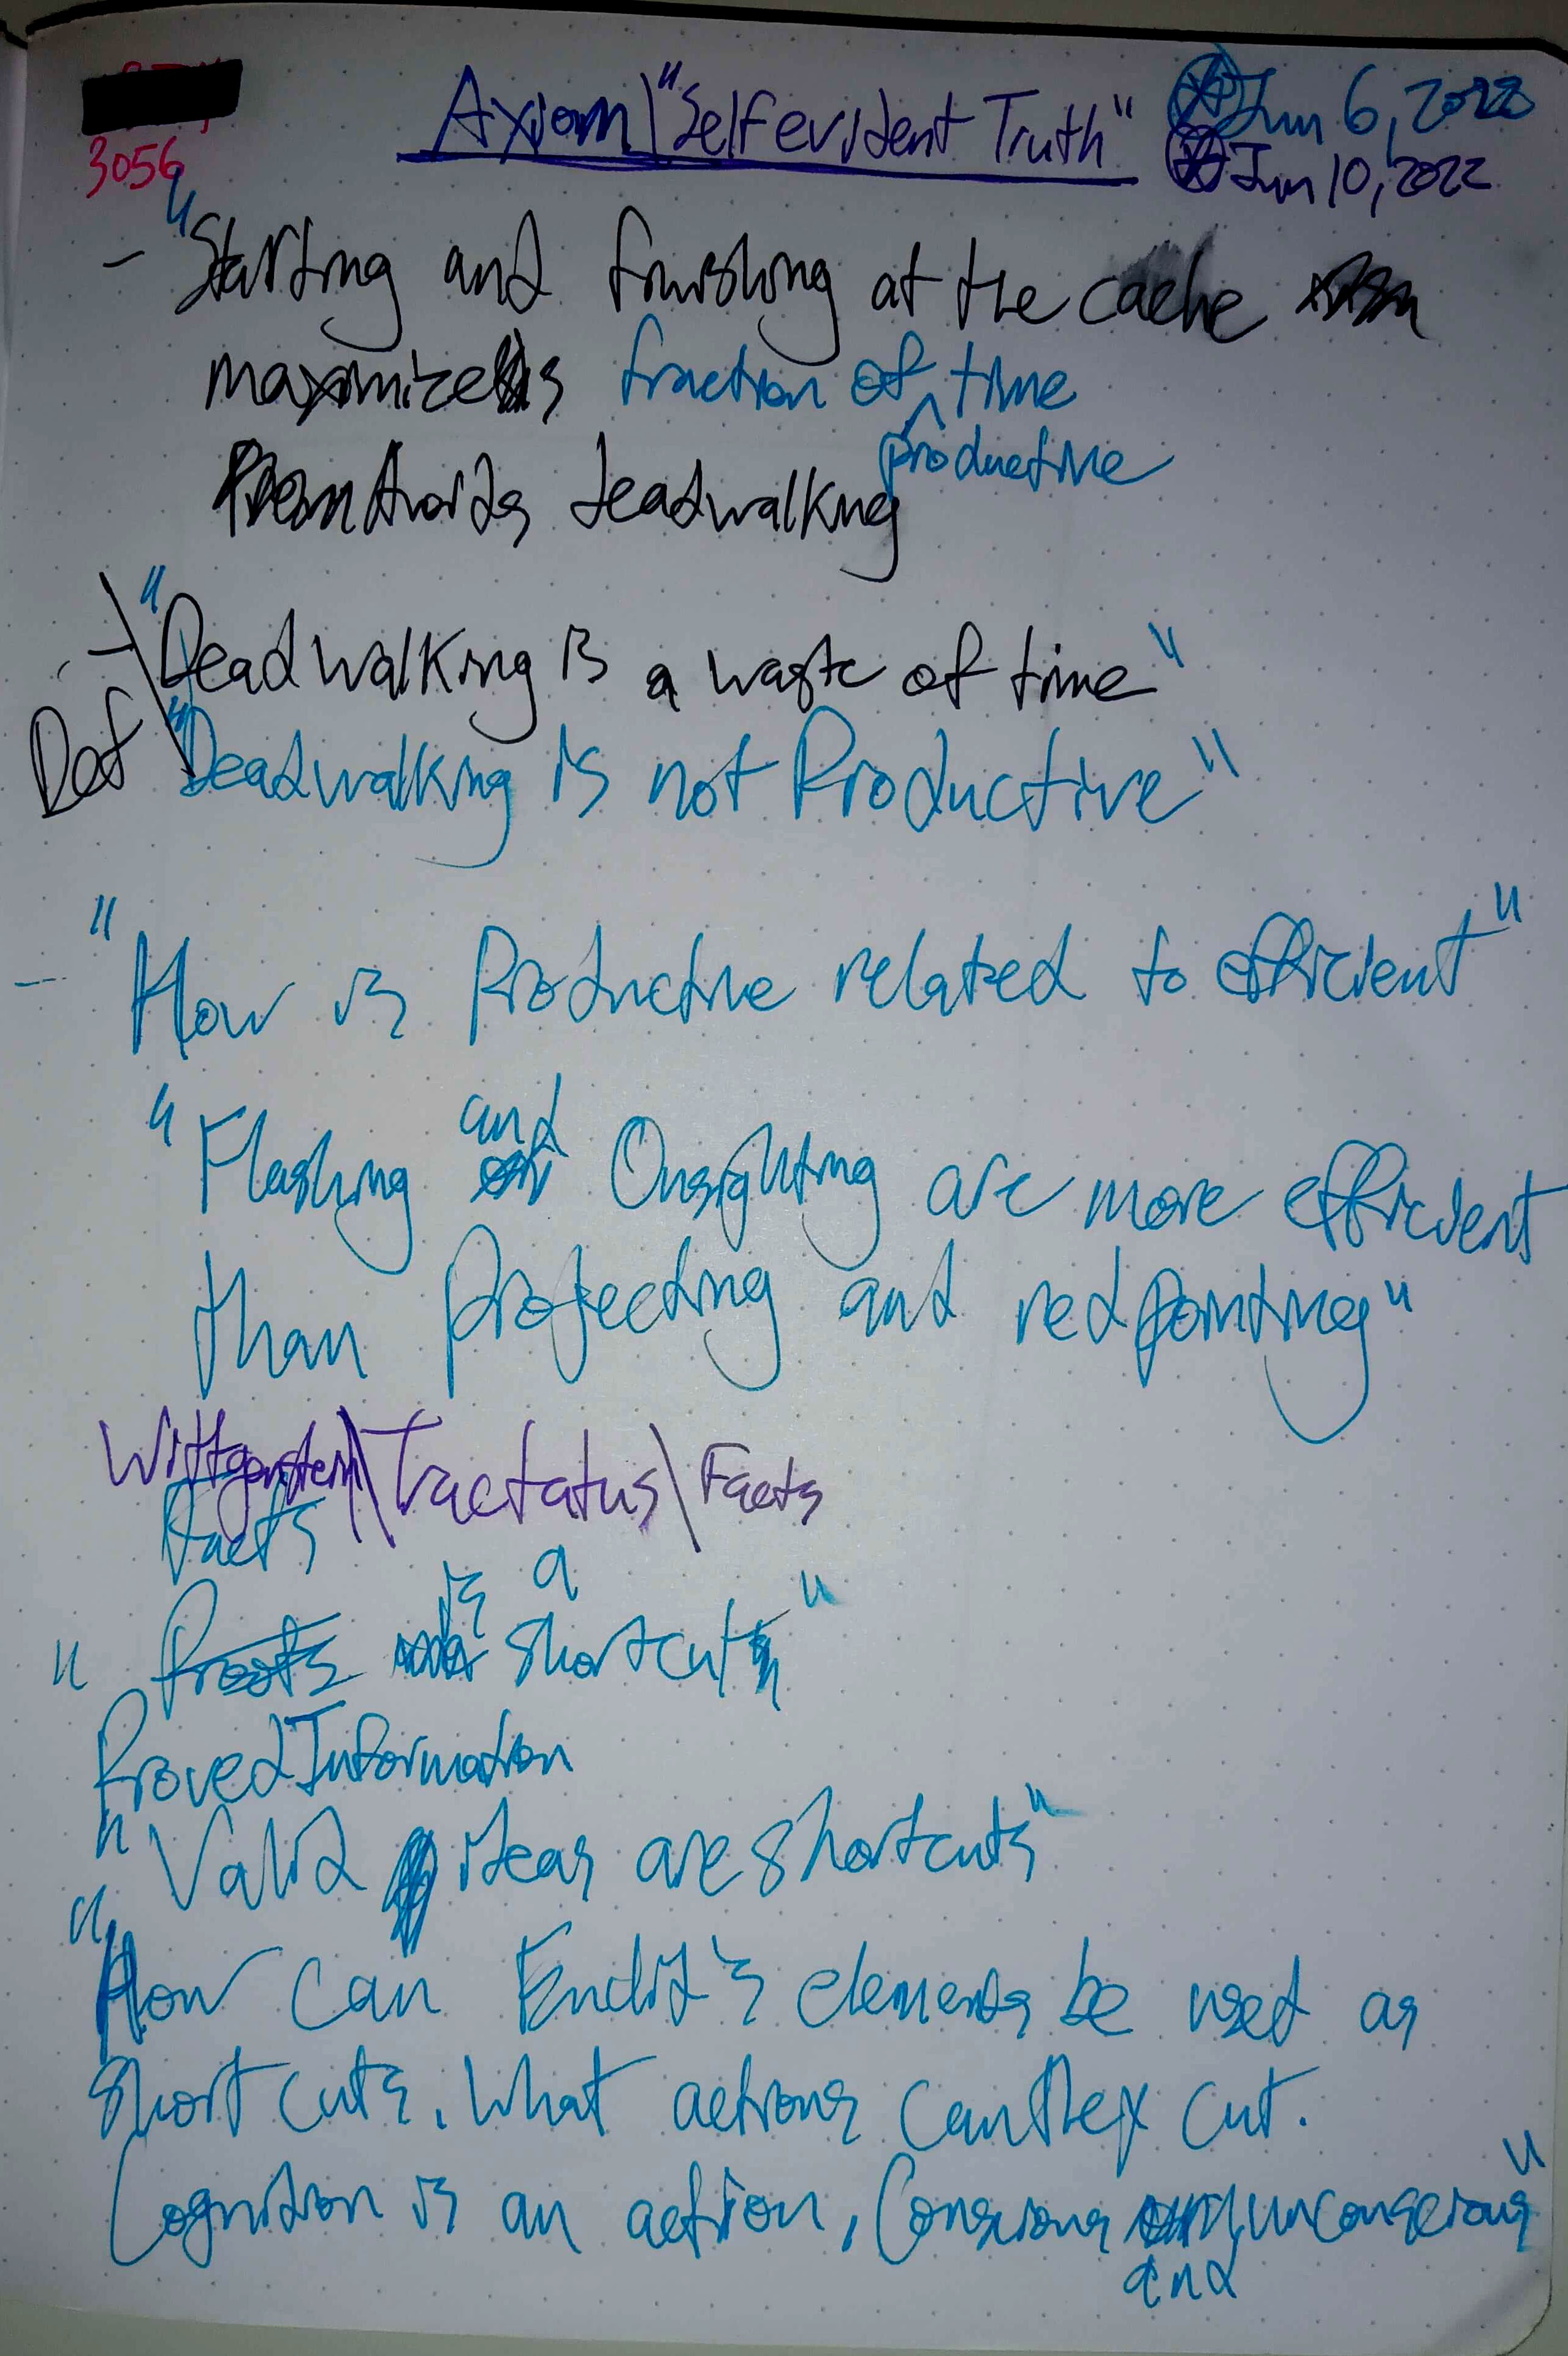 3056
Axiom\"Self evident Truth" Jun 6, 2022
Jun 10, 2022
- "Starting and finishing at the cache
maximizes fraction of ^ time
productive
Avoids deadwalking
- "Deadwalking is a waste of time"
Def "Deadwalking is not Productive"
- "How is Productive related to efficient"
and
"Flashing Onsighting are more efficient
than projecting and redpointing"
Wittgenstein\Tractatus\Facts
Facts
is a
" Proofs shortcut"
Proved Information
"Valid ideas are shortcuts"
"How can Euclid's elements be used as
shortcuts. What actions can they cut.
Cognition is an action, Conscious unconscious"
and